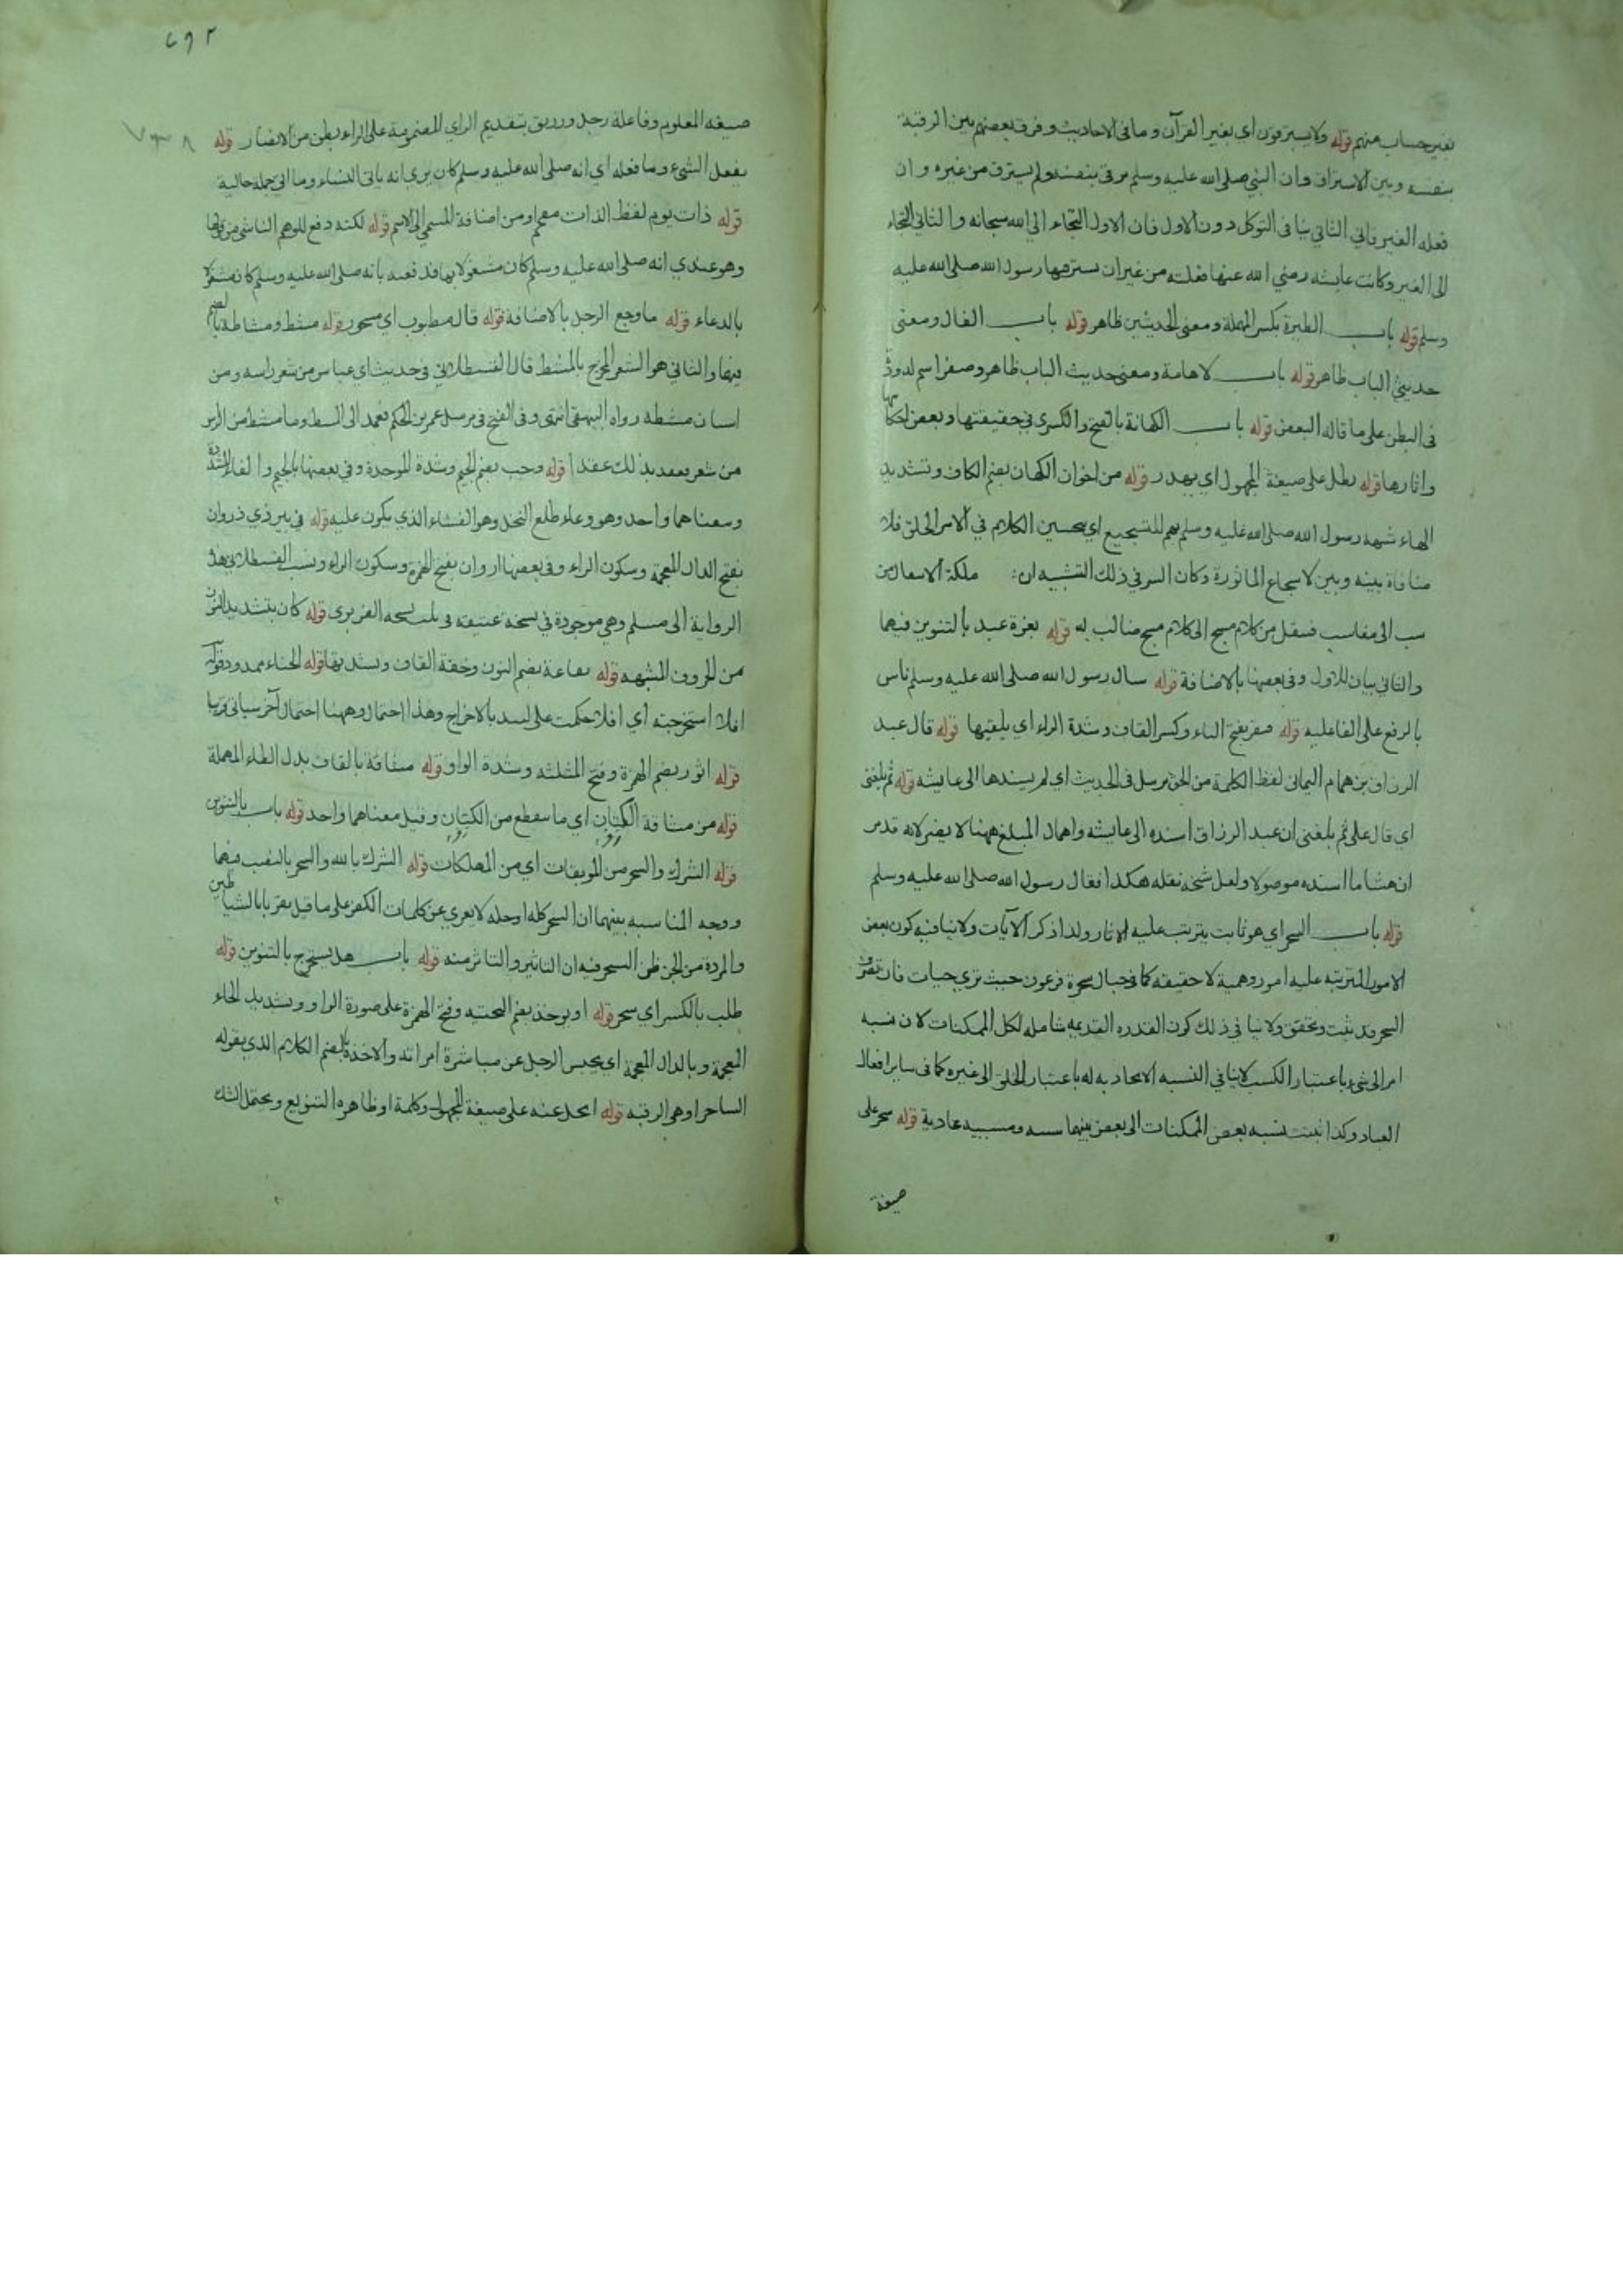 بغير حساب منهم قوله ولا يسترقون اى بغير القرآن وما فى الاحاديث وفرق بعضهم بين الرقية
بنفسه وبين الاسترقاق وان النبي صلى الله عليه وسلم رقى بنفسه ولم يسترق من غيره وان
فعله الغير ياتي الثاني ينافى التوكل دون الاول فان الاول التجاء الى الله سبحانه والثاني التجاء
الى الغير وكانت عايشه رضي الله عنها فعلته من غير ان يسترقها رسول الله صلى الله عليه
وسلم قوله باب الطيرة بكسر المهملة ومعنى الحديثين ظاهر قوله باب الفال ومعنى
حديثي الباب ظاهر قوله باب لا هامة ومعنى حديث الباب ظاهر وصفر اسم لدود
فى البطن على ما قاله البعض قوله باب الكهانة بالفتح والكسر فى حقيقتها وبعض احكامها
واثارها قوله بطل على صيغة المجهول اي يهدر قوله من اخوان الكهان بضم الكاف وتشديد
الهاء شبهه رسول الله صلى الله عليه وسلم بهم للتسجيع اي تحسين الكلام في الامر الخلق فلا
منافاة بينه وبين الاسجاع الماثورة وكان السر في ذلك التشبيه ان ملكة الاسعال من
سب الى مفاسب فينقل من كلام مسجع الى كلام مسجع مناسب له قوله بغرة عبد بالتنوين فيهما
والثاني بيان للاول وفى بعضها بالاضافة قوله سال رسول الله صلى الله عليه وسلم ناس
بالرفع على الفاعلية قوله فيقر بفتح الياء وكسر القاف وشدة الراء اي يلقيها قوله قال عبد
الرزاق بن همام اليمانى لفظ الكلمة من الحق مرسل فى الحديث اي لم يسندها الى عايشه قوله ثم بلغنى
اي قال على ثم بلغنى ان عبد الرزاق اسنده الى عايشه واهمال المبلغ ههنا لا يضر لانه قد مر
ان هشاما اسنده موصولا ولعل شيخه نقله هكذا فقال رسول الله صلى الله عليه وسلم
قوله باب السحر اي هو ثابت يترتب عليه الاثار ولذا ذكر الآيات ولا ينافيه كون بعض
الامور المترتبه عليه امور وهمية لا حقيقه كما فى حبال سحرة فرعون حيث ترى حيات فان تصرف
السحر قد يثبت ويتحقق ولا ينافي ذلك كون القدره القديمه شامله لكل الممكنات لان نسبه
امر الى شيء باعتبار الكسب لا ينافي النسبه الايجاديه له باعتبار الخلق الى غيره كما فى ساير افعال
العباد وكذا يثبت نسبه بعض الممكنات الى بعض بينهما سببيه ومسببيه عادية قوله سحر على
صيغة
٦٩٢
صيغه المعلوم وفاعله رجل وزريق بتقديم الزاى المضمومة على الراء بطن من الانصار قوله
يفعل الشيء وما فعله اي انه صلى الله عليه وسلم كان يرى انه ياتى النساء وما اتى جمله حالية
قوله ذات يوم لفظ الذات مقحم او من اضافة المسمى الى الاسم قوله لكنه دفع للوهم الناشى من قولها
وهو عندي انه صلى الله عليه وسلم كان مشغولا بها فدفعته بانه صلى الله عليه وسلم كان مشغولا
بالدعاء قوله ما وجع الرجل بالاضافة قوله قال مطبوب اي مسحور قوله مشط ومشاطه بالضم
فيها والثاني هو الشعر المخرج بالمشط قال القسطلانى فى حديث ابي عباس من شعر راسه ومن
اسنان مشطه رواه البيهقى انتهى وفى الفتح فى مرسل عمر بن الحكم فعمد الى المشط وما مشط من الراس
من شعر فعقد بذلك عقدا قوله وجب بضم الجيم وشدة الموحدة وفى بعضها بالجيم والفاء المشددة
ومعناهما واحد وهو وعاء طلع النخل وهو الغشاء الذي يكون عليه قوله في بير ذي ذروان
بفتح الذال المعجمة وسكون الراء وفى بعضها اروان بفتح الهمزة وسكون الراء ونسب القسطلانى هذه
الرواية الى مسلم وهى موجودة في نسخة عتيقه قوله كان بتشديد النون
من الحروف المشبهه قوله نقاعة بضم النون وخفة القاف وتشديدها قوله الحناء ممدود قوله
افلا استخرجته اي افلا حكمت على لبيد بالاخراج وهذا احتمال وههنا احتمال آخر سياتى قريبا
قوله اثور بضم الهمزة وفتح المثلثه وشدة الواو قوله مشاقة بالقاف بدل الطاء المهملة
قوله من مشاقة الكتان اي ما سقطع من الكتان وقيل معناهما واحد قوله باب بالتنوين
قوله الشرك والسحر من الموبقات اي من المهلكات قوله الشرك بالله والسحر بالنصب فيهما
ووجه المناسبه بينهما ان السحر كله او جله لا يعرى عن كلمات الكفر على ما قيل تقربا بالشياطين
والمردة من الجن ظن السحر فيه ان التاثير والتاثر منه قوله باب هل يستخرج بالتنوين قوله
طلب بالكسر اي سحر قوله او يوخذ بضم التحتيه وفتح الهمزة على صورة الواو وتشديد الخاء
المعجمة وبالذال المعجمة اي يحبس الرجل عن مباشرة امراته والاخذة بالضم الكلام الذي يقوله
الساحر او هى الرقيه قوله ايحل عنه على صيغة المجهول وكلمة او ظاهره التنويع ويحتمل الشك